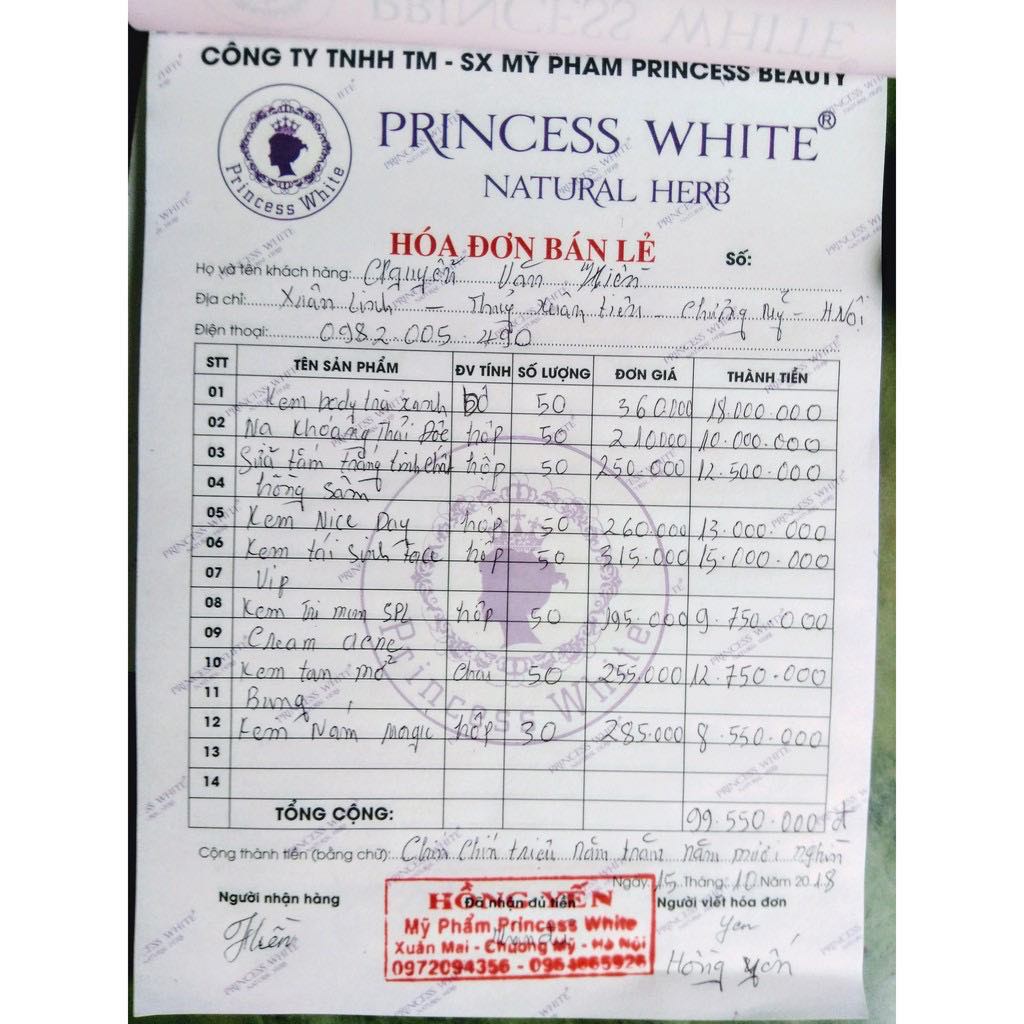 CÔNG TY TNHH TM - SX MỸ PHẨM PRINCESS BEAUTY
Princess White
PRINCESS WHITE®
NATURAL HERB
HÓA ĐƠN BÁN LẺ
Số:
Họ và tên khách hàng: Nguyễn Văn Hiền
Địa chỉ: Xuân Linh - Thuỷ Xuân Tiên - Chương Mỹ - H Nội
Điện thoại: 0982.005.490
STT TÊN SẢN PHẨM ĐV TÍNH SỐ LƯỢNG ĐƠN GIÁ THÀNH TIỀN
01 Kem body trà xanh bộ 50 360.000 18.000.000
02 Na Khoáng Thải Độc hộp 50 210.000 10.000.000
03 Sữa tắm trắng tinh chất hộp 50 250.000 12.500.000
04 hồng sâm
05 Kem Nice Day hộp 50 260.000 13.000.000
06 Kem tái sinh Face hộp 50 315.000 15.000.000
07 Vip
08 Kem Tri mun SPL hộp 50 195.000 9.750.000
09 Cream acne
10 Kem tan mỡ Chai 50 255.000 12.750.000
11 Bụng
12 Kem Nam magic hộp 30 285.000 8.550.000
13
14
TỔNG CỘNG: 99.550.000 đ
Cộng thành tiền (bằng chữ): Chín Chín triệu năm trăm năm mươi nghìn
Ngày 15 Tháng 10 Năm 2018
Người nhận hàng Đã nhận đủ tiền Người viết hóa đơn
Hiền
Yen
Hồng Yến
HỒNG YẾN
Mỹ Phẩm Princess White
Xuân Mai - Chương Mỹ - Hà Nội
0972094356 - 0964665926